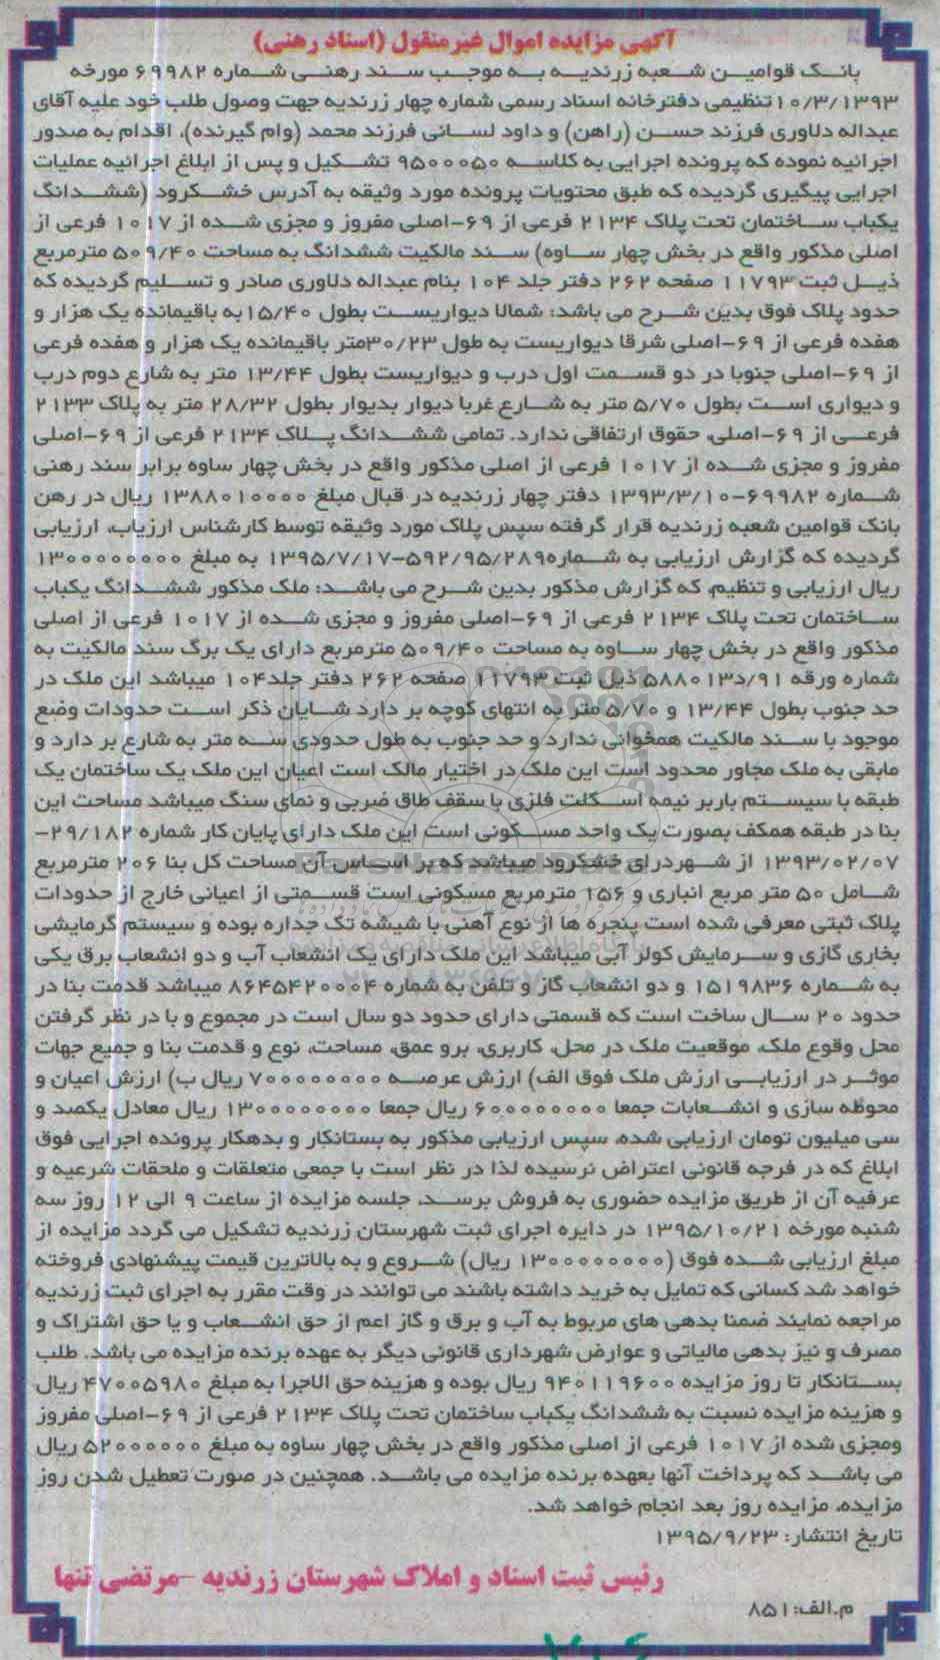 آگهی مزایده اموال غیرمنقول (اسناد رهنی)
بانک قوامین شعبه زرندیه به موجب سند رهنی شماره ۶۹۹۸۲ مورخه
۱۰/۳/۱۳۹۳ تنظیمی دفترخانه اسناد رسمی شماره چهار زرندیه جهت وصول طلب خود علیه آقای
عبداله دلاوری فرزند حسن (راهن) و داود لسانی فرزند محمد (وام گیرنده)، اقدام به صدور
اجرائیه نموده که پرونده اجرایی به کلاسه ۹۵۰۰۰۵۰ تشکیل و پس از ابلاغ اجرائیه عملیات
اجرایی پیگیری گردیده که طبق محتویات پرونده مورد وثیقه به آدرس خشکرود (ششدانگ
یکباب ساختمان تحت پلاک ۲۱۳۴ فرعی از ۶۹-اصلی مفروز و مجزی شده از ۱۰۱۷ فرعی از
اصلی مذکور واقع در بخش چهار ساوه) سند مالکیت ششدانگ به مساحت ۵۰۹/۴۰ مترمربع
ذیل ثبت ۱۱۷۹۳ صفحه ۲۶۲ دفتر جلد ۱۰۴ بنام عبداله دلاوری صادر و تسلیم گردیده که
حدود پلاک فوق بدین شرح می باشد: شمالا دیواریست بطول ۱۵/۴۰ به باقیمانده یک هزار و
هفده فرعی از ۶۹-اصلی شرقا دیواریست به طول ۳۰/۲۳متر باقیمانده یک هزار و هفده فرعی
از ۶۹-اصلی جنوبا در دو قسمت اول درب و دیواریست بطول ۱۳/۴۴ متر به شارع دوم درب
و دیواری است بطول ۵/۷۰ متر به شارع غربا دیوار بدیوار بطول ۲۸/۳۲ متر به پلاک ۲۱۳۳
فرعی از ۶۹-اصلی، حقوق ارتفاقی ندارد. تمامی ششدانگ پلاک ۲۱۳۴ فرعی از ۶۹-اصلی
مفروز و مجزی شده از ۱۰۱۷ فرعی از اصلی مذکور واقع در بخش چهار ساوه برابر سند رهنی
شماره ۶۹۹۸۲-۱۳۹۳/۳/۱۰ دفتر چهار زرندیه در قبال مبلغ ۱۳۸۸۰۱۰۰۰۰ ریال در رهن
بانک قوامین شعبه زرندیه قرار گرفته سپس پلاک مورد وثیقه توسط کارشناس ارزیاب، ارزیابی
گردیده که گزارش ارزیابی به شماره۵۹۲/۹۵/۲۸۹-۱۳۹۵/۷/۱۷ به مبلغ ۱۳۰۰۰۰۰۰۰۰
ریال ارزیابی و تنظیم، که گزارش مذکور بدین شرح می باشد: ملک مذکور ششدانگ یکباب
ساختمان تحت پلاک ۲۱۳۴ فرعی از ۶۹-اصلی مفروز و مجزی شده از ۱۰۱۷ فرعی از اصلی
مذکور واقع در بخش چهار ساوه به مساحت ۵۰۹/۴۰ مترمربع دارای یک برگ سند مالکیت به
شماره ورقه ۹۱/د۵۸۸۰۱۳ ذیل ثبت ۱۱۷۹۳ صفحه ۲۶۲ دفتر جلد۱۰۴ میباشد این ملک در
حد جنوب بطول ۱۳/۴۴ و ۵/۷۰ متر به انتهای کوچه بر دارد شایان ذکر است حدودات وضع
موجود با سند مالکیت همخوانی ندارد و حد جنوب به طول حدودی سه متر به شارع بر دارد و
مابقی به ملک مجاور محدود است این ملک در اختیار مالک است اعیان این ملک یک ساختمان یک
طبقه با سیستم باربر نیمه اسکلت فلزی با سقف طاق ضربی و نمای سنگ میباشد مساحت این
بنا در طبقه همکف بصورت یک واحد مسکونی است این ملک دارای پایان کار شماره ۲۹/۱۸۲-
۱۳۹۳/۰۲/۰۷ از شهرداری خشکرود میباشد که بر اساس آن مساحت کل بنا ۲۰۶ مترمربع
شامل ۵۰ متر مربع انباری و ۱۵۶ مترمربع مسکونی است قسمتی از اعیانی خارج از حدودات
پلاک ثبتی معرفی شده است پنجره ها از نوع آهنی با شیشه تک جداره بوده و سیستم گرمایشی
بخاری گازی و سرمایش کولر آبی میباشد این ملک دارای یک انشعاب آب و دو انشعاب برق یکی
به شماره ۱۵۱۹۸۳۶ و دو انشعاب گاز و تلفن به شماره ۸۶۴۵۴۲۰۰۰۴ میباشد قدمت بنا در
حدود ۲۰ سال ساخت است که قسمتی دارای حدود دو سال است در مجموع و با در نظر گرفتن
محل وقوع ملک، موقعیت ملک در محل، کاربری، برو عمق، مساحت، نوع و قدمت بنا و جمیع جهات
موثر در ارزیابی ارزش ملک فوق الف) ارزش عرصه ۷۰۰۰۰۰۰۰۰ ریال ب) ارزش اعیان و
محوطه سازی و انشعابات جمعا ۶۰۰۰۰۰۰۰۰ ریال جمعا ۱۳۰۰۰۰۰۰۰۰ ریال معادل یکصد و
سی میلیون تومان ارزیابی شده، سپس ارزیابی مذکور به بستانکار و بدهکار پرونده اجرایی فوق
ابلاغ که در فرجه قانونی اعتراض نرسیده لذا در نظر است با جمعی متعلقات و ملحقات شرعیه و
عرفیه آن از طریق مزایده حضوری به فروش برسد، جلسه مزایده از ساعت ۹ الی ۱۲ روز سه
شنبه مورخه ۱۳۹۵/۱۰/۲۱ در دایره اجرای ثبت شهرستان زرندیه تشکیل می گردد مزایده از
مبلغ ارزیابی شده فوق (۱۳۰۰۰۰۰۰۰۰ ریال) شروع و به بالاترین قیمت پیشنهادی فروخته
خواهد شد کسانی که تمایل به خرید داشته باشند می توانند در وقت مقرر به اجرای ثبت زرندیه
مراجعه نمایند ضمنا بدهی های مربوط به آب و برق و گاز اعم از حق انشعاب و یا حق اشتراک و
مصرف و نیز بدهی مالیاتی و عوارض شهرداری قانونی دیگر به عهده برنده مزایده می باشد. طلب
بستانکار تا روز مزایده ۹۴۰۱۱۹۶۰۰ ریال بوده و هزینه حق الاجرا به مبلغ ۴۷۰۰۵۹۸۰ ریال
و هزینه مزایده نسبت به ششدانگ یکباب ساختمان تحت پلاک ۲۱۳۴ فرعی از ۶۹-اصلی مفروز
ومجزی شده از ۱۰۱۷ فرعی از اصلی مذکور واقع در بخش چهار ساوه به مبلغ ۵۲۰۰۰۰۰۰ ریال
می باشد که پرداخت آنها بعهده برنده مزایده می باشد. همچنین در صورت تعطیل شدن روز
مزایده، مزایده روز بعد انجام خواهد شد.
تاریخ انتشار: ۱۳۹۵/۹/۲۳
رئیس ثبت اسناد و املاک شهرستان زرندیه -مرتضی تنها
م.الف: ۸۵۱